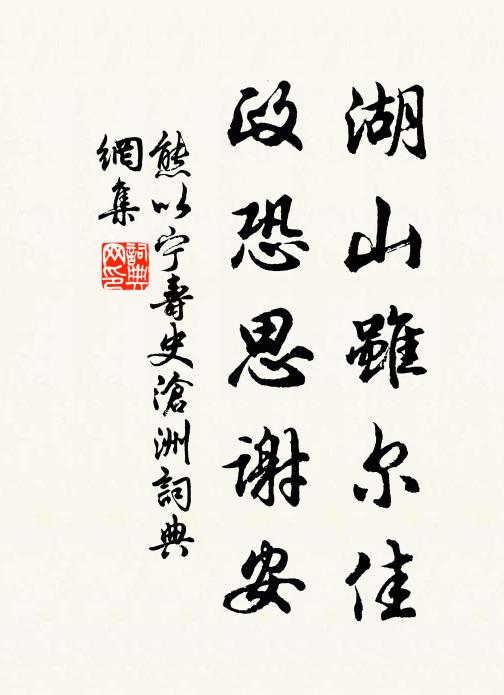 湖山雖尔佳
政恐思謝安
熊以宁壽史滄洲詞典
網集
詞典
网印